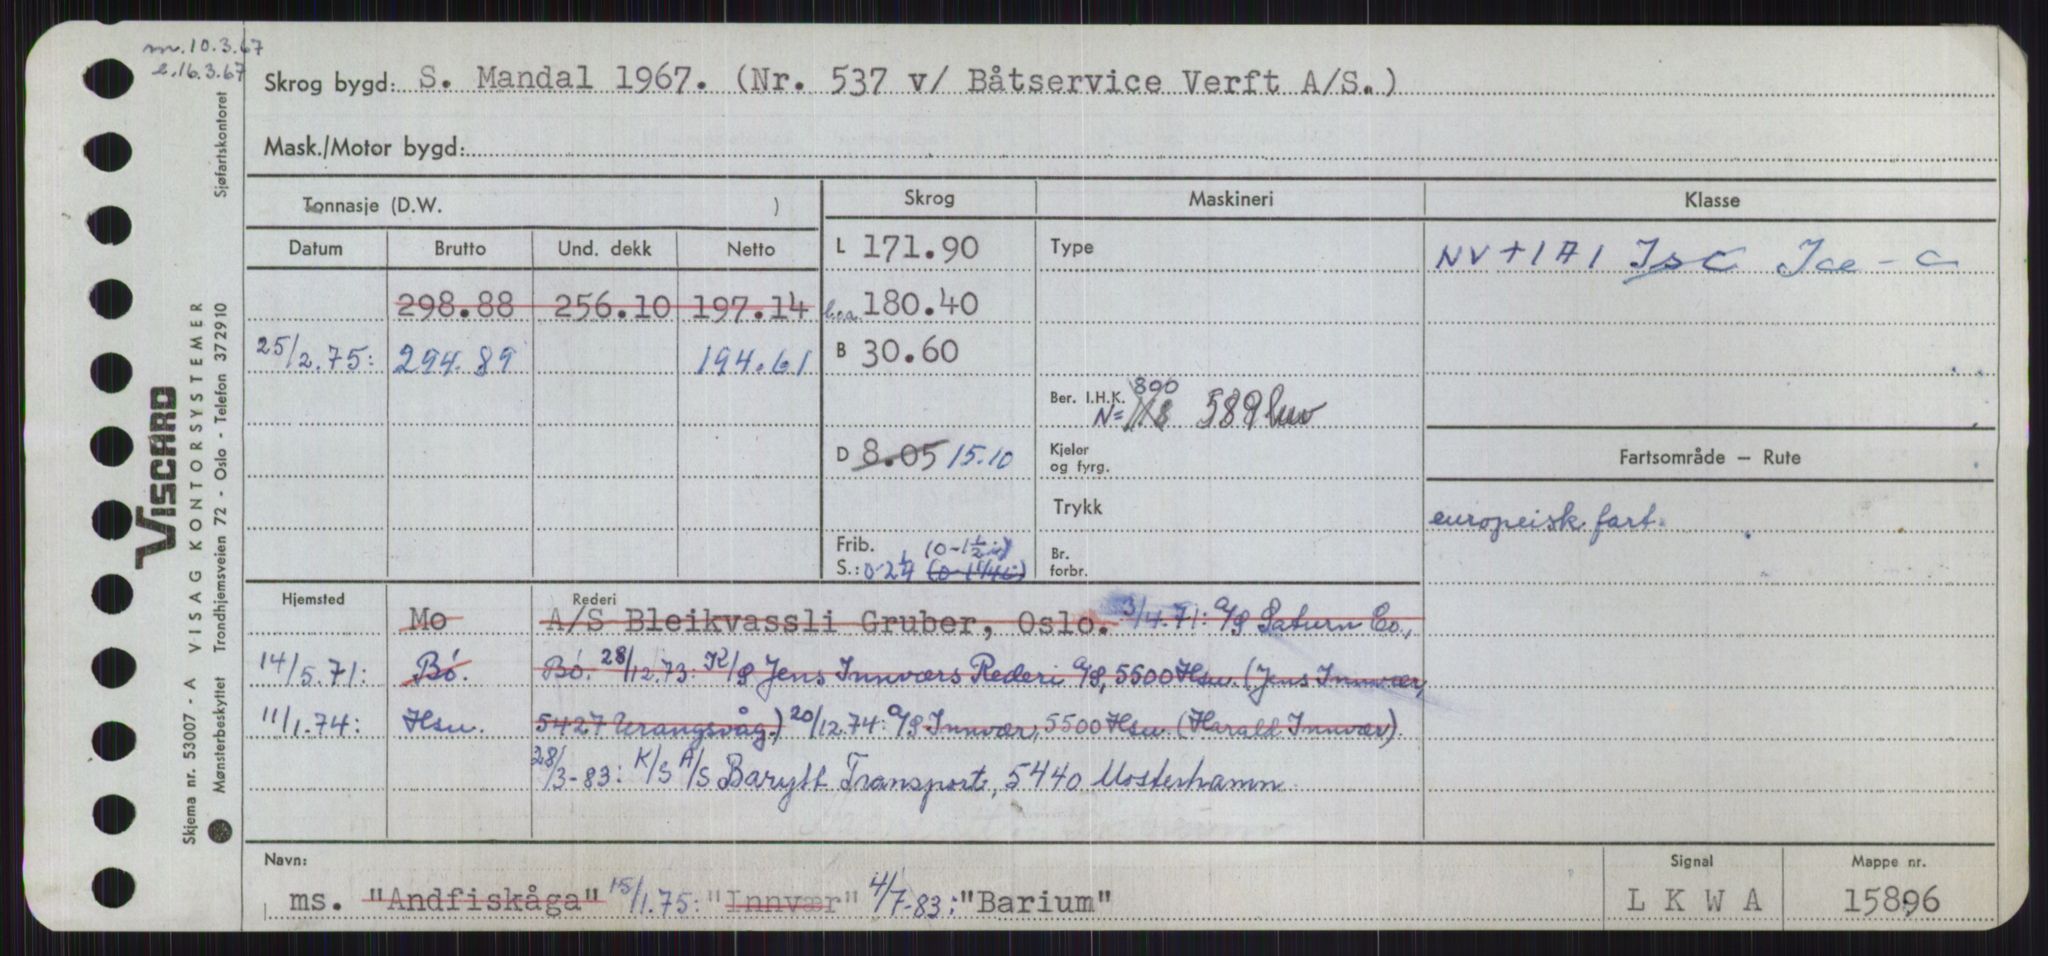 m. 10.3.67
e. 16.3.67
Skrog bygd: S. Mandal 1967. (Nr. 537 v/ Båtservice Verft A/S.)
Mask./Motor bygd:
Tonnasje (D.W. )
Datum Brutto Und. dekk Netto
298.88 256.10 197.14
25/2.75: 294.89 194.61
Skrog
L 171.90
l.o.a. 180.40
B 30.60
D 8.05 15.10
Frib. (0-1½")
S.: 0-2¼
Maskineri
Type
800
Ber. I.H.K.
N= 589 kw
Kjeler
og fyrg.
Trykk
Br.
forbr.
Klasse
NV+1A1 IsC Ice-C
Fartsområde – Rute
europeisk fart.
Hjemsted Rederi
Mo A/S Bleikvassli Gruber, Oslo. 3/4.71: A/S Saturn Co.,
14/5.71: Bö. Bö. 28/12.73: K/S Jens Innværs Rederi A/S, 5500 Hsu. (Jens Innvær,
11/1.74: Hsu. 5427 Urangsvåg.) 20/12.74: A/S Innvær, 5500 Hsu. (Harald Innvær).
28/3-83: K/S A/S Barytt Transport, 5440 Mosterhamn
Navn: Signal Mappe nr.
ms. "Andfiskåga" 15/1.75: "Innvær" 4/7-83: "Barium" LKWA 15896
VISCARD
VISAG KONTORSYSTEMER
Skjema nr. 53007 - A
Sjøfartskontoret
Mønsterbeskyttet Trondhjemsveien 72 - Oslo - Telefon 372910